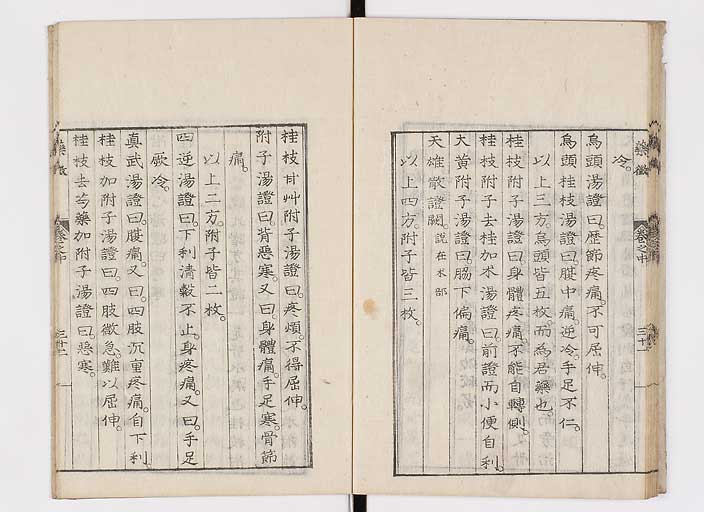 藥徴
卷之中
三十一
冷。
烏頭湯證曰。歷節疼痛。不可屈伸。
烏頭桂枝湯證曰。腹中痛。逆冷。手足不仁。
以上三方。烏頭皆五枚。而為君藥也。
桂枝附子湯證曰。身體疼痛。不能自轉側。
桂枝附子去桂加朮湯證曰。前證而小便自利。
大黃附子湯證曰。脇下偏痛。
天雄散證闕。說在朮部
以上四方。附子皆三枚。
桂枝甘艸附子湯證曰。疼煩。不得屈伸。
附子湯證曰。背惡寒。又曰。身體痛。手足寒。骨節
痛。
以上二方。附子皆二枚。
四逆湯證曰。下利清穀不止。身疼痛。又曰。手足
厥冷。
真武湯證曰。腹痛。又曰。四肢沉重疼痛。自下利。
桂枝加附子湯證曰。四肢微急。難以屈伸。
桂枝去芍藥加附子湯證曰。惡寒。
藥徴
卷之中
三十二